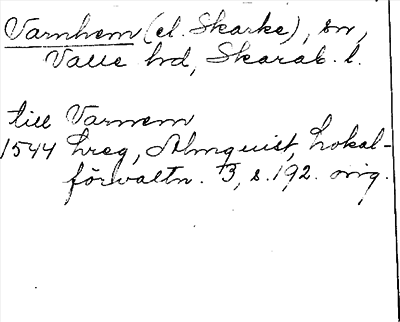 Varnhem (el. Skarke), sn,
Valle hd, Skarab. l.
till Varnem
1544 hreg, Almquist, Lokal-
förvaltn. 3, s. 192. orig.